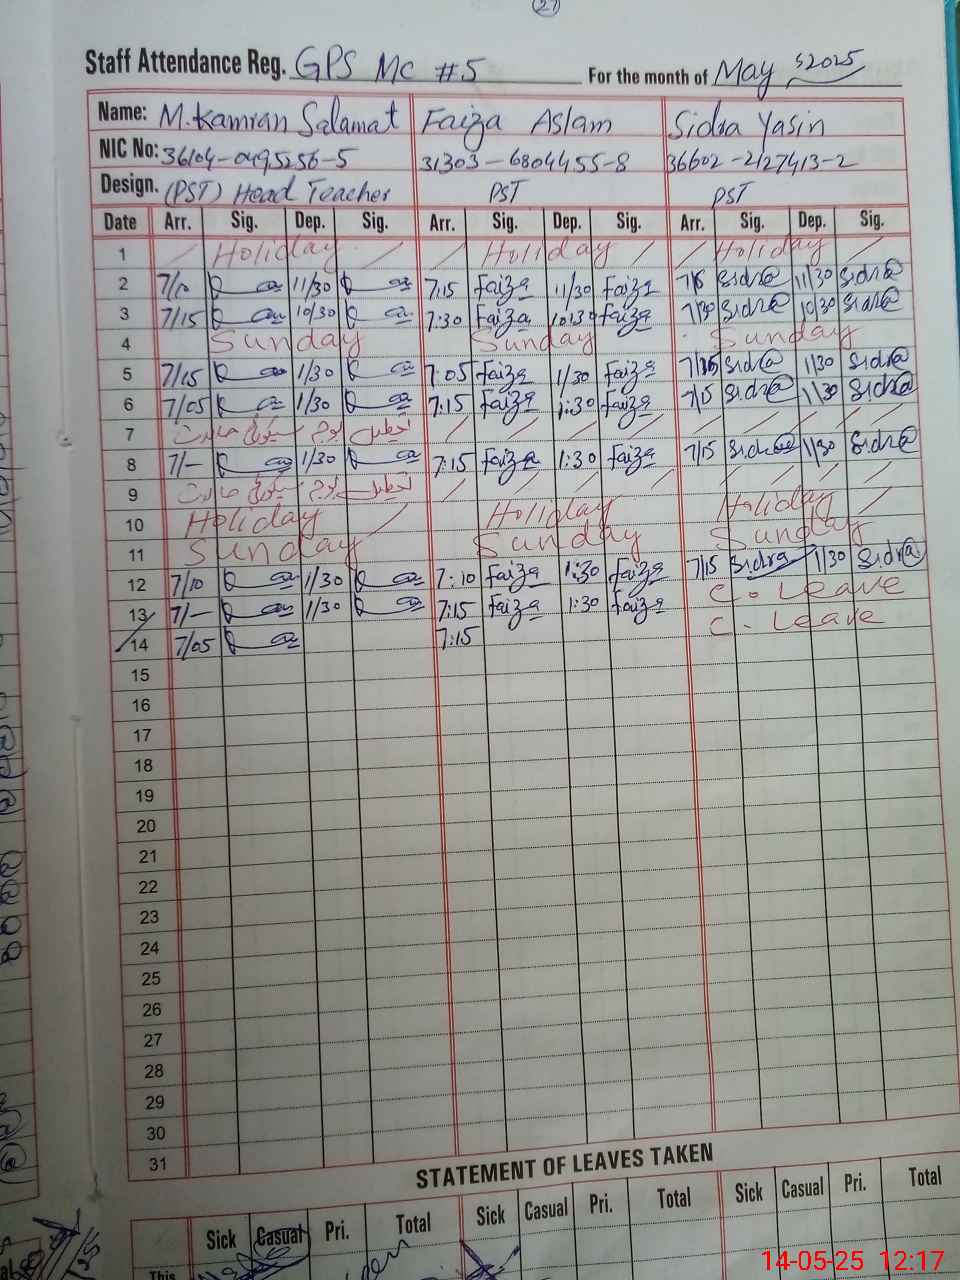 27
Staff Attendance Reg. GPS MC #5 For the month of May, 2025
Name: M.Kamran Salamat Faiza Aslam Sidra Yasin
NIC No: 36104-0495256-5 31303-6804455-8 36602-2127413-2
Design. (PST) Head Teacher PST PST
Date Arr. Sig. Dep. Sig. Arr. Sig. Dep. Sig. Arr. Sig. Dep. Sig.
1 Holiday Holiday Holiday
2 7/10 11/30 7:15 Faiza 11/30 Faiza Sidra 11/30 Sidra
3 7/15 10/30 7:30 Faiza 10:30 Faiza 7/30 Sidra 10/30 Sidra
4 Sunday Sunday Sunday
5 7/15 1/30 7:05 Faiza 1/30 Faiza Sidra 1/30 Sidra
6 7/05 1/30 7:15 Faiza 1:30 Faiza 7/15 Sidra 1/30 Sidra
7 تعطیل
8 7/- 1/30 7:15 Faiza 1:30 Faiza 7/15 Sidra 1/30 Sidra
9 تعطیل
10 Holiday Holiday Holiday
11 Sunday Sunday Sunday
12 7/10 1/30 7:10 Faiza 1:30 Faiza 7/15 Sidra 1/30 Sidra
13 7/- 1/30 7:15 Faiza 1:30 Faiza C. Leave
14 7/05 7:15 C. Leave
15
16
17
18
19
20
21
22
23
24
25
26
27
28
29
30
31
STATEMENT OF LEAVES TAKEN
Sick Casual Pri. Total Sick Casual Pri. Total Sick Casual Pri. Total
This
14-05-25 12:17